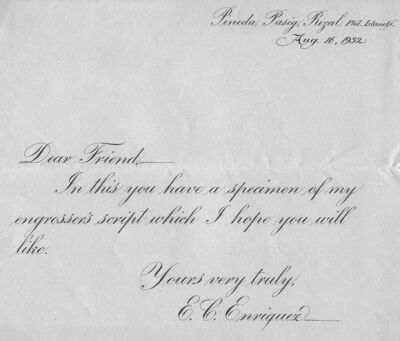 Pineda, Pasig, Rizal. Phil. Islands.
Aug. 16, 1932
Dear Friend,
In this you have a specimen of my
engrosser's script which I hope you will
like.
Yours very truly,
E. C. Enriquez